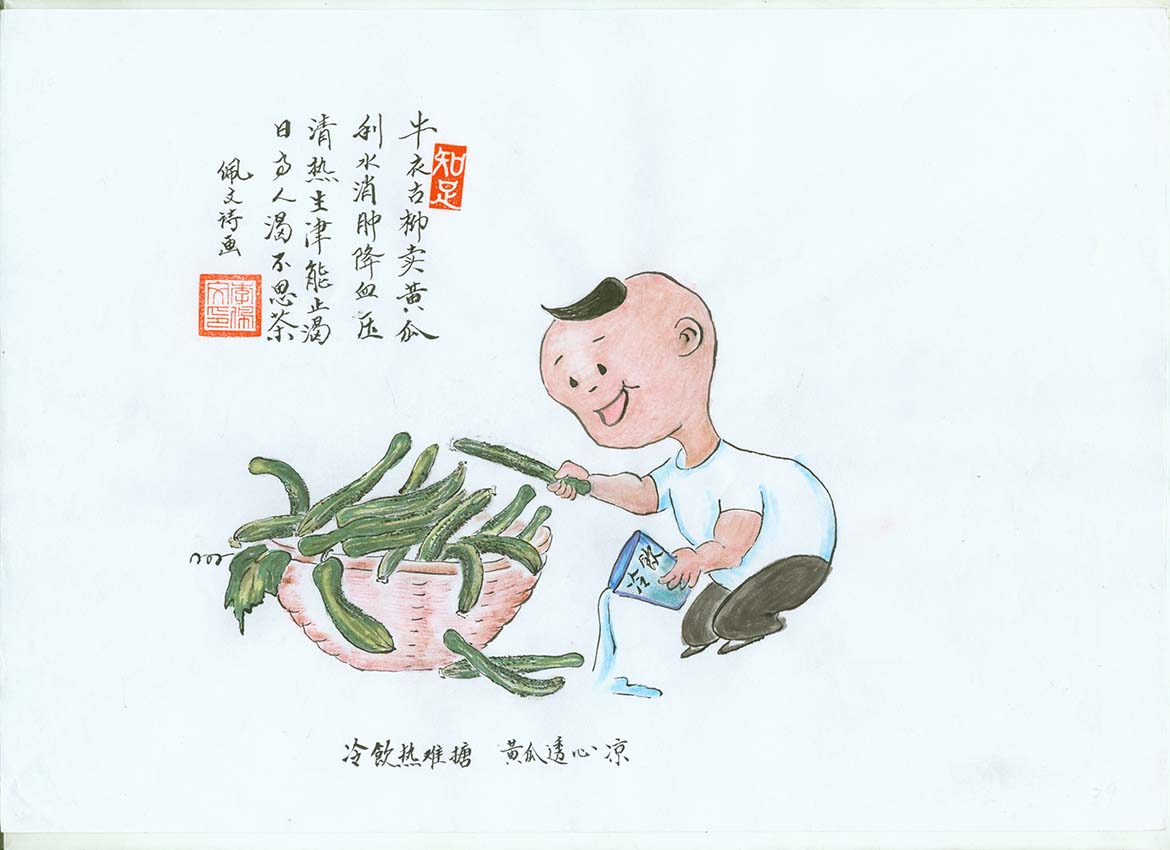 知足
牛衣古柳卖黄瓜
利水消肿降血压
清热生津能止渴
日高人渴不思茶
佩文诗画
李佩文印
冷飲
冷飲热难搪 黄瓜透心凉